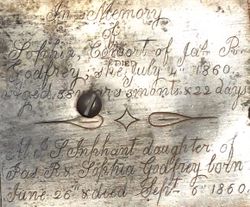 In Memory
of
Sophia, Consort of Jas. R.
Godfrey, she DIED July 4th 1860.
Aged, 38 years 8 months & 22 days
At. I. S. Inphant daughter of
Jas R & Sophia Godfrey born
June. 26th & died Sept. 6th 1860.